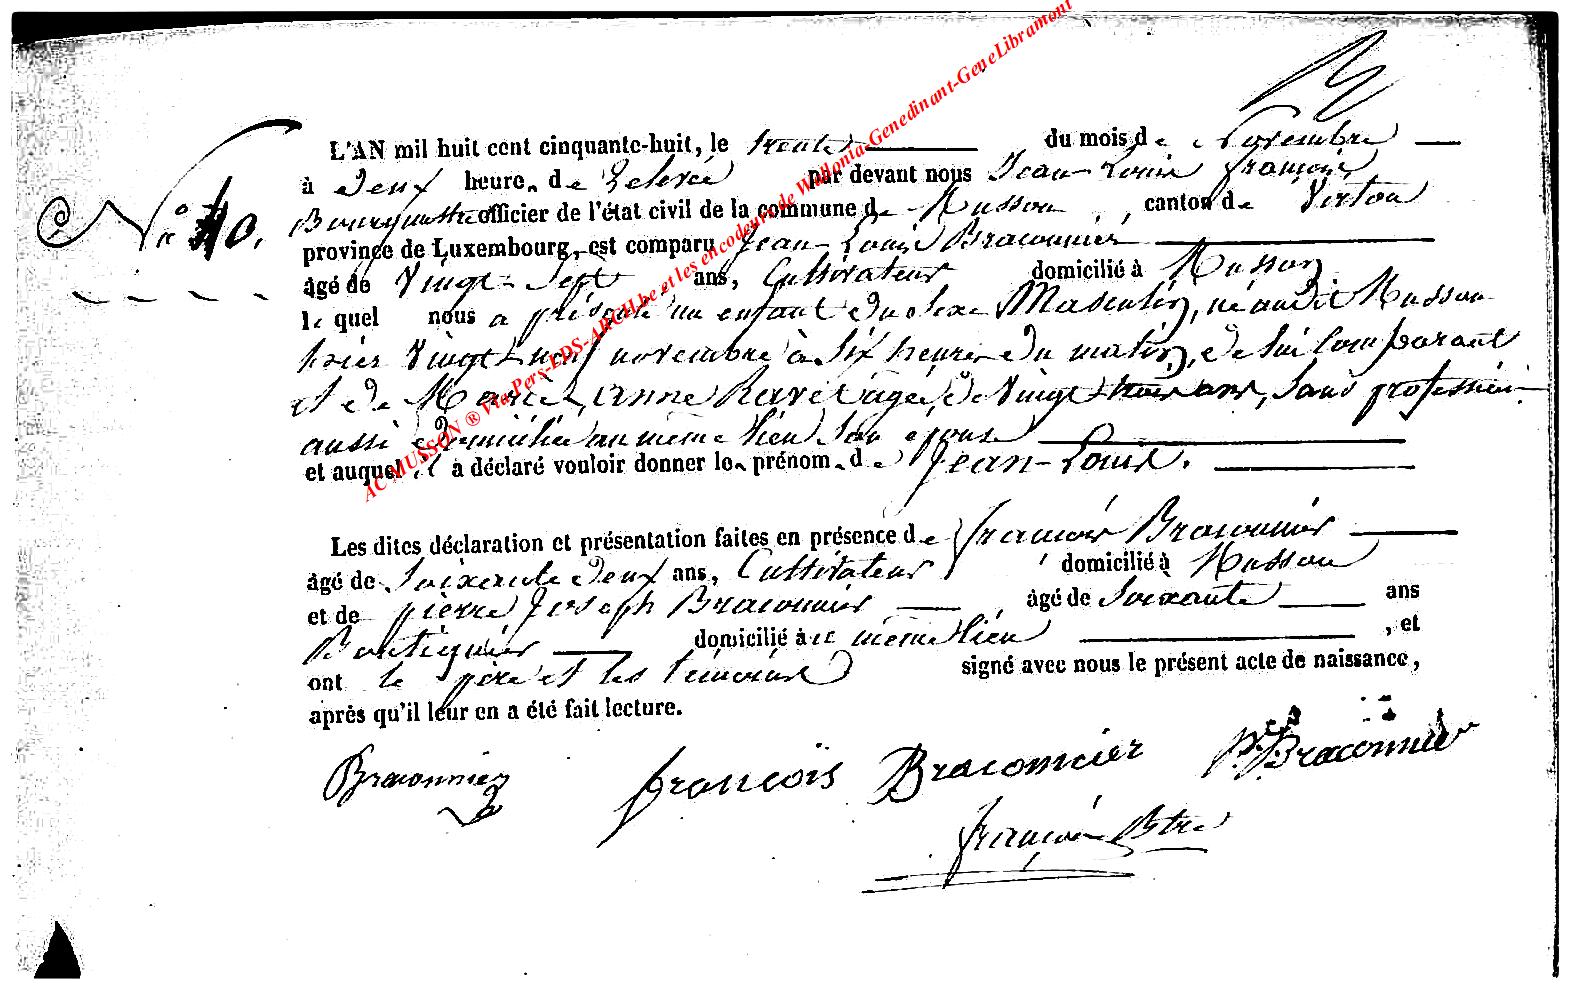 L'AN mil huit cent cinquante-huit, le trente du mois de Novembre
à deux heures de relevée par devant nous Jean-Louis françois
Bourgmestre officier de l'état civil de la commune de Musson, canton de Virton
N° 40.
province de Luxembourg, est comparu Jean-Louis Braconnier
âgé de vingt-sept ans, Cultivateur domicilié à Musson
lequel nous a présenté un enfant du sexe Masculin, né audit Musson
hier vingt-neuf novembre à six heures du matin, de lui Comparant
et de Marie, Anne âgée de vingt ans, sans profession
aussi domiciliée au même lieu son épouse
et auquel il a déclaré vouloir donner les prénoms de Jean-Louis.
Les dites déclaration et présentation faites en présence de françois Braconnier
âgé de soixante deux ans, Cultivateur domicilié à Musson
et de pierre Joseph Braconnier âgé de soixante ans
Boutiquier domicilié au même lieu, et
ont le père et les témoins signé avec nous le présent acte de naissance,
après qu'il leur en a été fait lecture.
Braconnier françois Braconnier P. J. Braconnier
françois Btre
AC MUSSON ® Via Pers-LDS-ARCH.be et les encodeurs de Wallonia-Genedinant-GeneLibramont